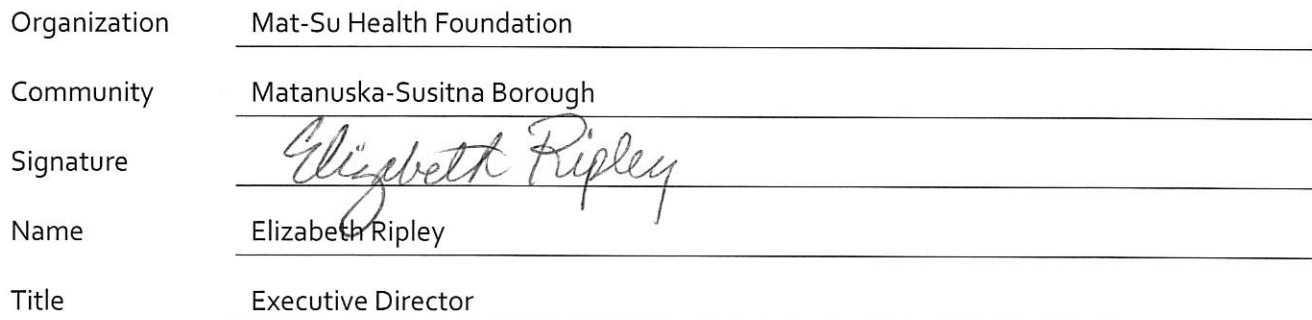 Organization Mat-Su Health Foundation
Community Matanuska-Susitna Borough
Signature Elizabeth Ripley
Name Elizabeth Ripley
Title Executive Director